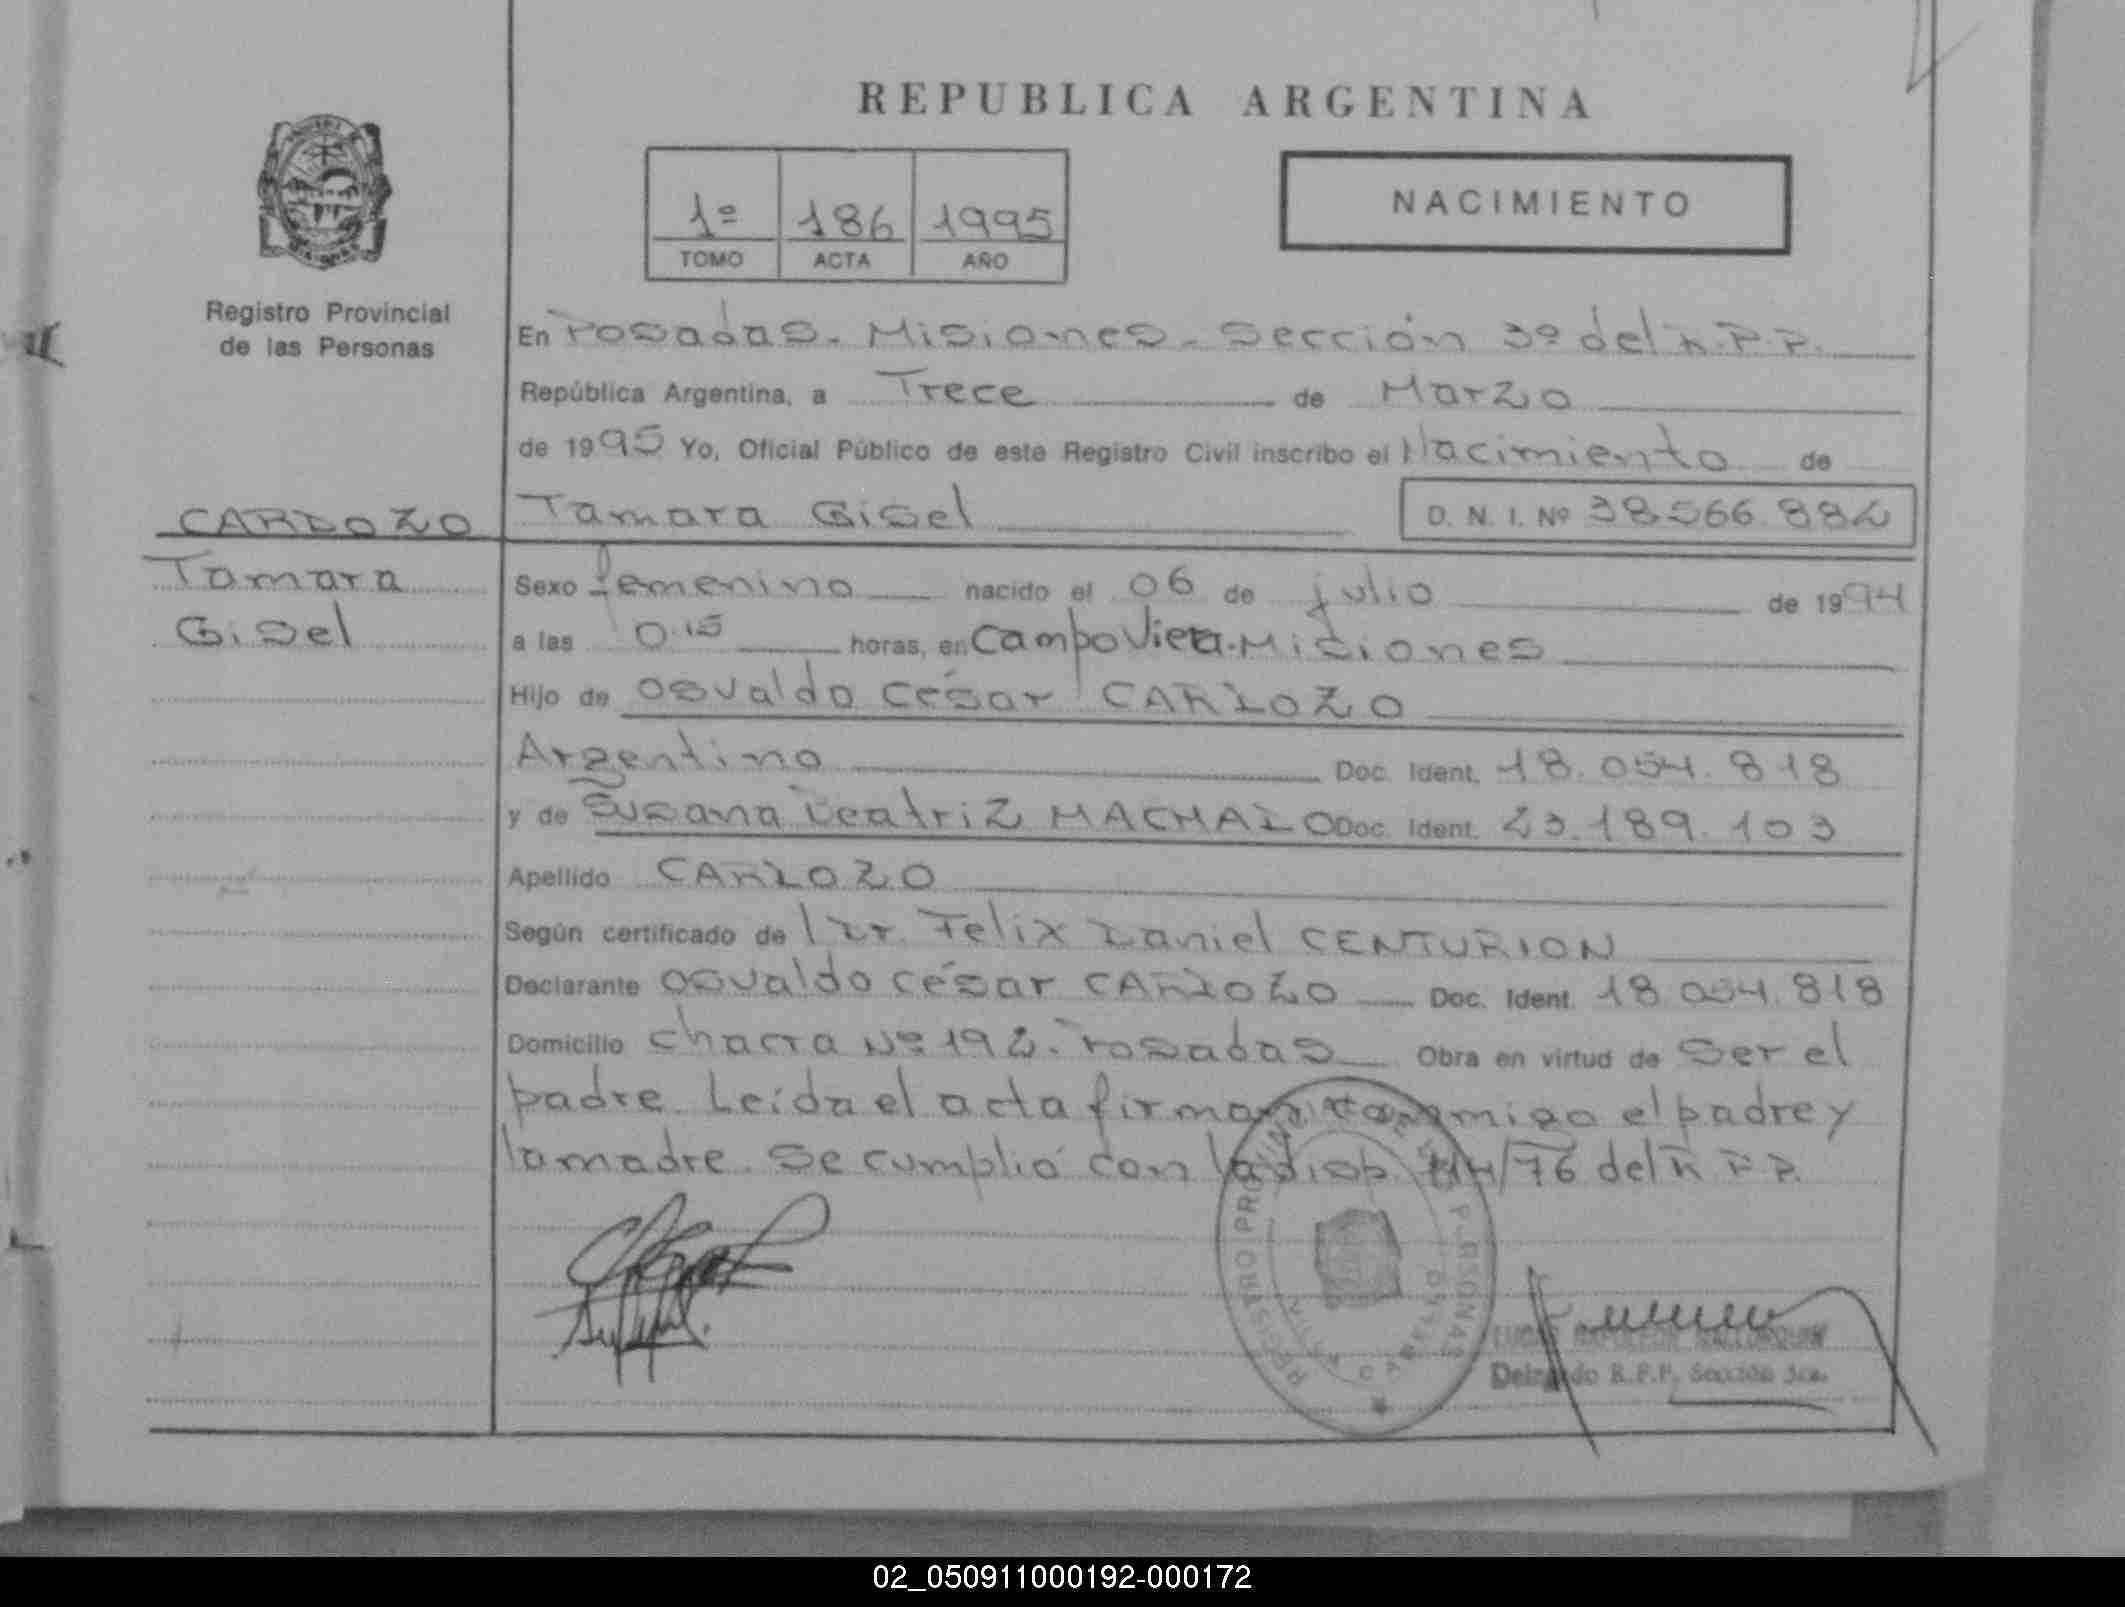 REPUBLICA ARGENTINA
1º 186 1995
TOMO ACTA AÑO
NACIMIENTO
Registro Provincial
de las Personas
En Posadas. Misiones. Sección 3º del R.P.P.
República Argentina, a Trece de Marzo
de 1995 Yo, Oficial Público de este Registro Civil inscribo el Nacimiento de
CARDOZO
Tamara Gisel D. N. I. Nº 38.566.882
Tamara
Gisel
Sexo femenino nacido el 06 de julio de 1994
a las 0.15 horas, en Campo Viera. Misiones
Hijo de Osvaldo César CARDOZO
Argentino Doc. Ident. 18.054.818
y de Susana Beatriz MACHADO Doc. Ident. 23.189.103
Apellido CARDOZO
Según certificado de Dr. Felix Daniel CENTURION
Declarante Osvaldo César CARDOZO Doc. Ident. 18.054.818
Domicilio Chacra Nº 192. Posadas Obra en virtud de Ser el
padre. Leída el acta firman conmigo el padre y
la madre. Se cumplió con la disp. /76 del R.P.P.
REGISTRO PROVINCIAL DE LAS PERSONAS
Delegado R.P.P. Sección 3ra.
02_050911000192-000172